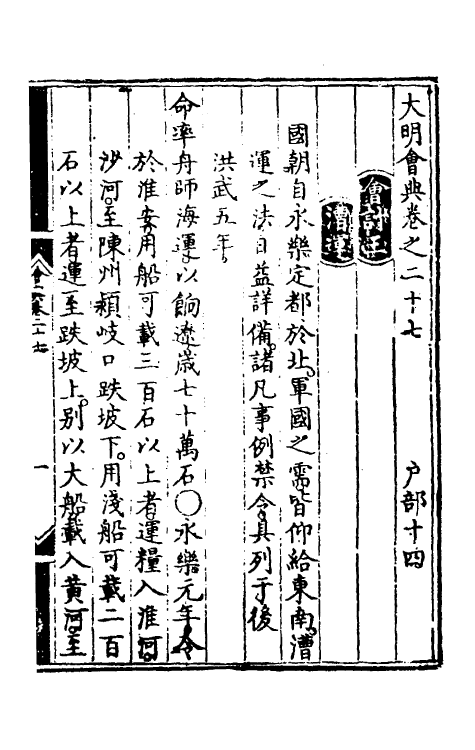 大明會典卷之二十七　戶部十四
會計三
漕運
國朝自永樂定都於北。軍國之需。皆仰給東南。漕
運之法。日益詳備。諸凡事例禁令。具列于後
洪武五年。
命率舟師海運。以餉遼。歲七十萬石○永樂元年。令
於淮安用船可載三百石以上者運糧入淮河。
沙河。至陳州潁岐口跌坡下。用淺船可載二百
石以上者運至跌坡上。別以大船載入黃河。至
會典卷二十七
一